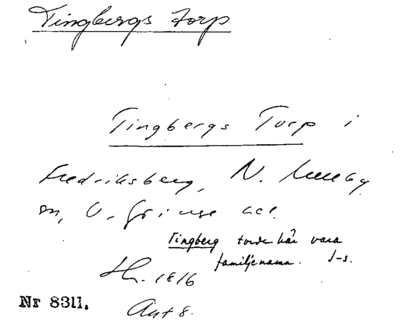 Tingbergs torp
Tingbergs Torp i
Fredriksberg, N. Mellby
sn, V. Göinge hd.
Tingberg torde här vara
familjenamn. J-s.
Hn. 1816
Nr 8311.
Ant 8.